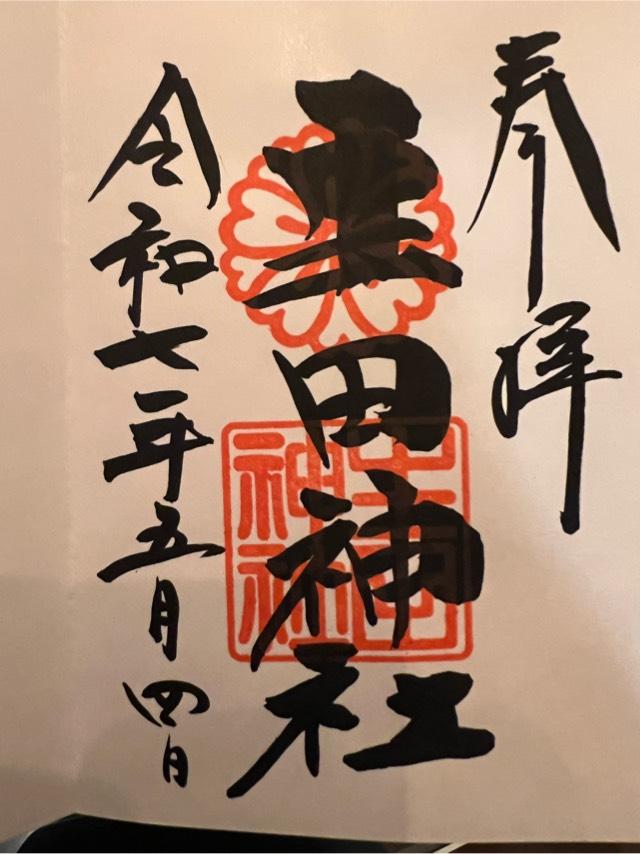 奉拝
生田神社
令和七年五月四日
生田
神社